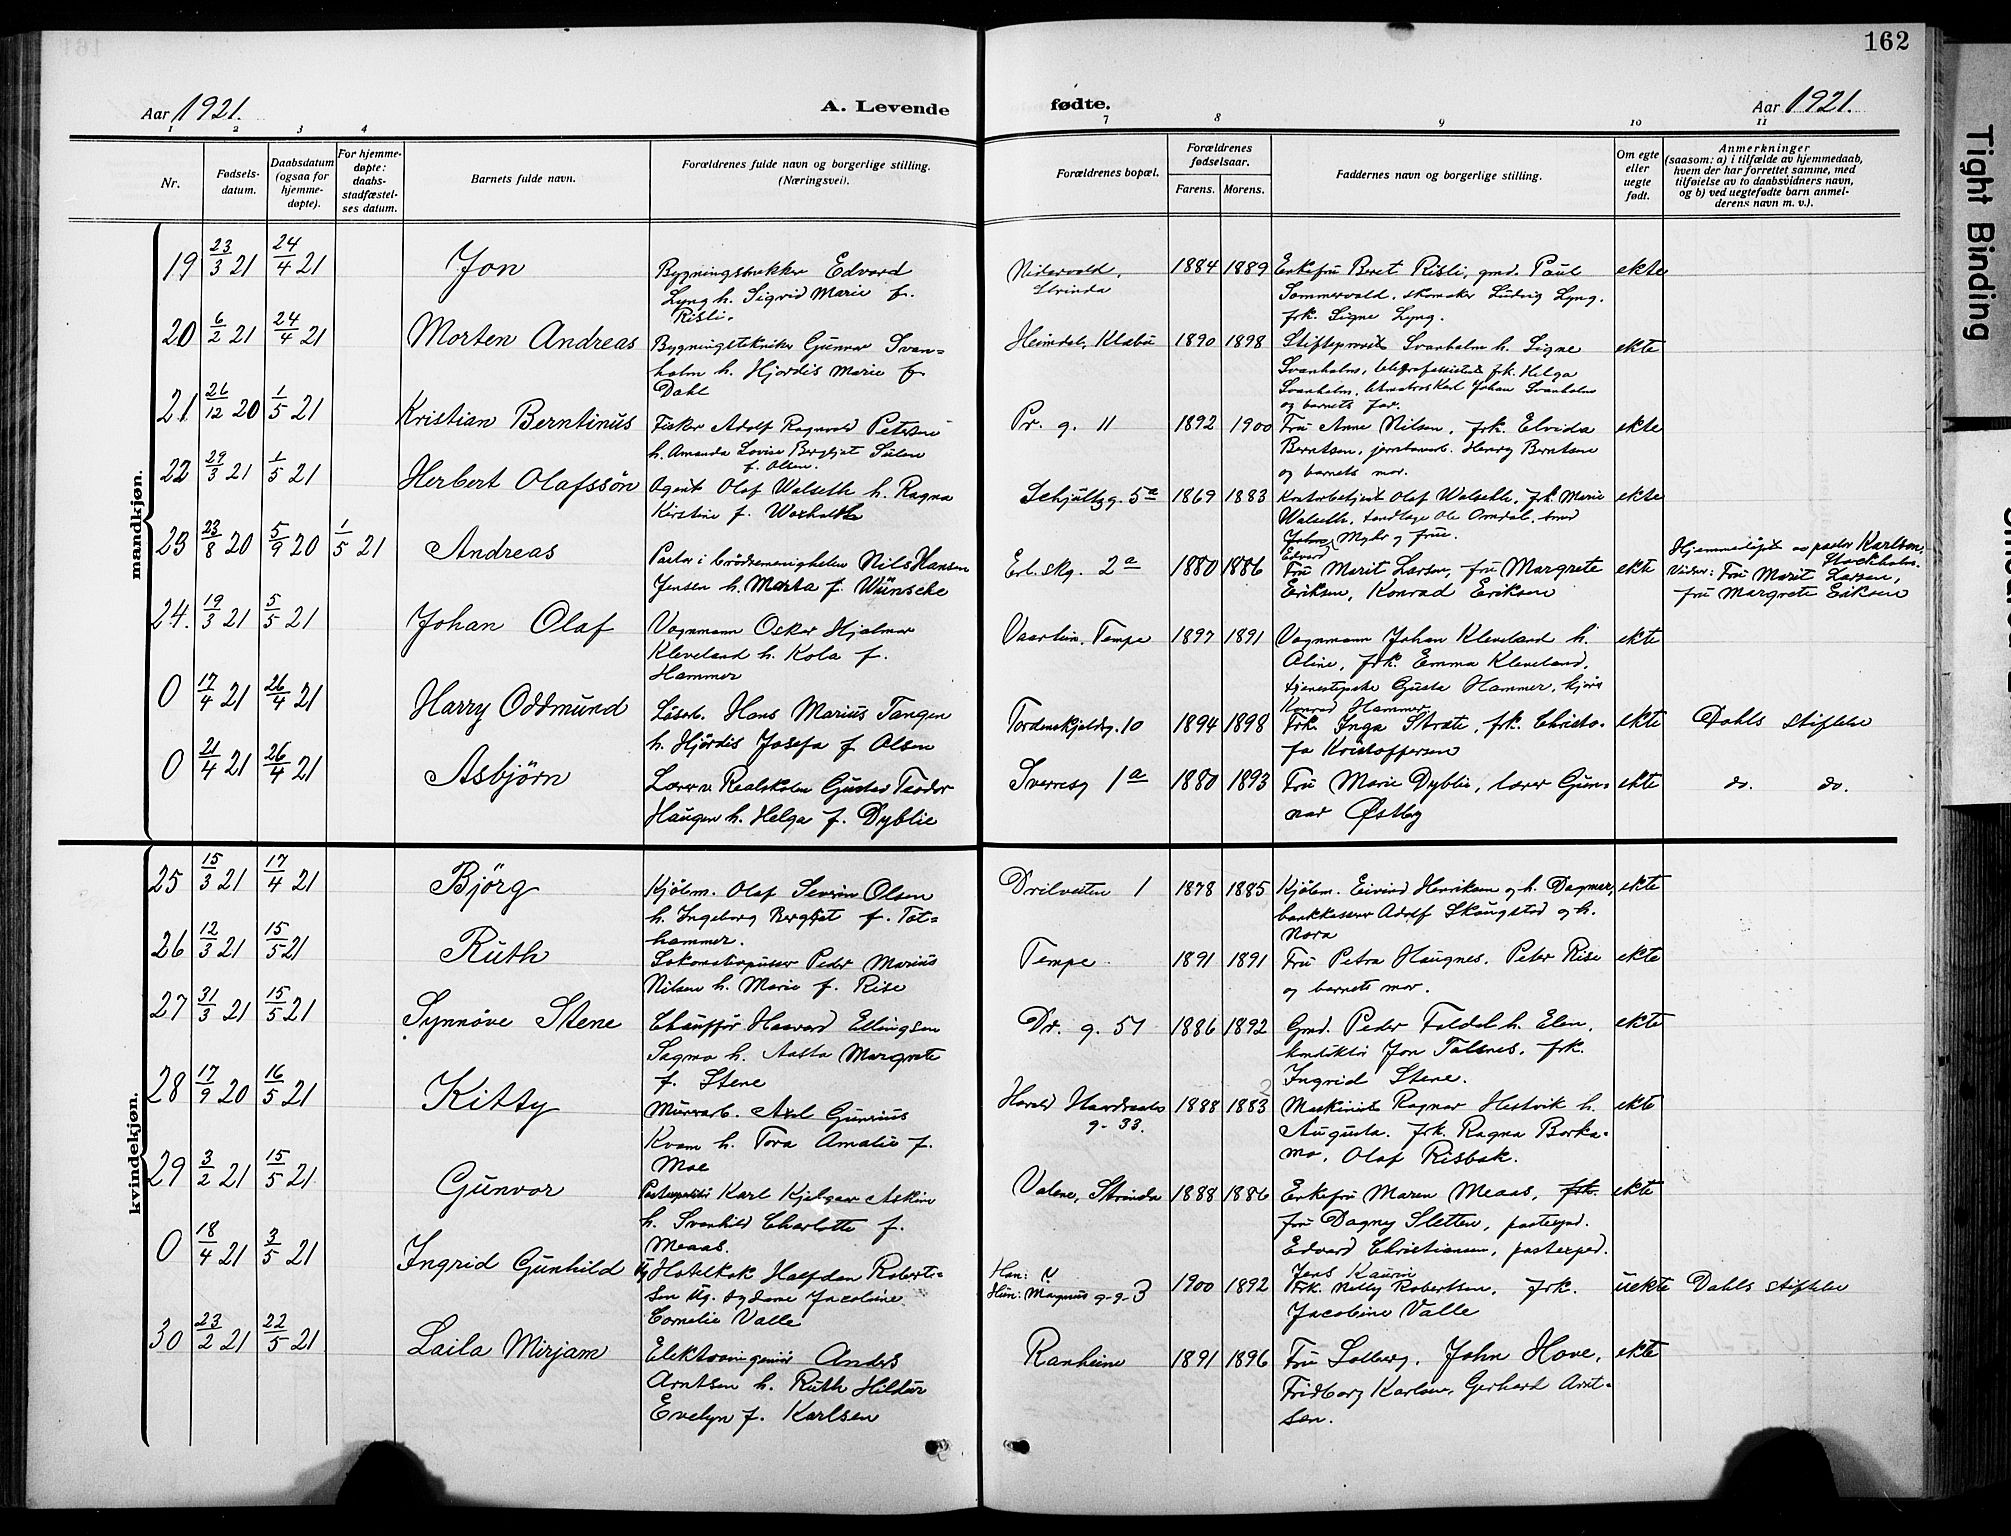 162
Aar 1921.
A. Levende fødte.
Aar 1921.
1 2 3 4 7 8 9 10 11
Nr.
Fødsels-
datum.
Daabsdatum
(ogsaa for
hjemme-
døpte).
For hjemme-
døpte:
daabs-
stadfæstel-
ses datum.
Barnets fulde navn.
Forældrenes fulde navn og borgerlige stilling.
(Næringsvei).
Forældrenes bopæl.
Forældrenes
fødselsaar.
Farens. Morens.
Faddernes navn og borgerlige stilling.
Om egte
eller
uegte
født.
Anmerkninger
(saasom: a) i tilfælde av hjemmedaab,
hvem der har forrettet samme, med
tilføielse av to daabsvidners navn,
og b) ved uegtefødte barn anmel-
derens navn m. v.).
mandkjøn.
19 23/3 21 24/4 21 Jon
Edvard
Lyng h. Sigrid Marie f.
Risli.
Nidarvold,
Strinda
1884 1889
Enkefru Beret Risli, gmd. Paul
Sommervold, skomaker Ludvig Lyng,
frk. Signe Lyng.
ekte
20 6/2 21 24/4 21 Morten Andreas
Bygningstekniker Gunnar Svan-
holm h. Hjördis Marie f.
Dahl
Heimdal, Klæbu
1890 1898
Stiftsprovst Svanholm h. Signe
Svanholm, telegrafistinde frk. Helga
Svanholm, Karl Johan Svanholm
og barnets far.
ekte
21 26/12 20 1/5 21 Kristian Berntinus
Fisker Adolf Ragnvald Petersen
h. Amanda Lovise Bergljot
f. Olsen.
Pr. g. 11
1892 1900
Fru Anne Nilsen, frk. Elvida
Berntsen, jernbanearb. Henry Berntsen
og barnets mor.
ekte
22 29/3 21 1/5 21 Herbert Olafssön
Agent Olaf Walseth h. Ragna
Kirstine f.
Schjultzg. 5a
1869 1883
Kontorbetjent Olaf Walseth, frk. Marie
Walseth, tandlæge Ole Omdal,
Edvard Myhr og frue.
ekte
23 23/8 20 5/9 20 1/5 21 Andreas
Pastor i brödremenigheten Nils Hansen
Jensen h. Marta f. Wünsche
Erl. Skg. 2a
1880 1886
Fru Marit Larsen, fru Margrete
Eriksen, Konrad Eriksen
ekte
Hjemmedöpt av pastor Karlson,
Stockholm.
Vidner: Fru Marit Larsen,
fru Margrete Eriksen
24. 19/3 21 5/5 21 Johan Olaf
Vognmann Oskar Hjalmar
Kleveland h. Kola f.
Hammer
Vaarheim, Tempe
1897 1891
Vognmann Johan Kleveland h.
Aline, frk. Emma Kleveland,
tjenestepike Gusta Hammer,
Konrad Hammer
ekte
0 17/4 21 26/4 21 Harry Oddmund
Løsarb. Hans Marius Tangen
h. Hjördis Josefa f. Olsen
Tordenskjoldsg. 10
1894 1898
Frk. Inga Strøte, frk. Christo-
fa Kristoffersen
ekte
Dahls stiftelse
0 21/4 21 26/4 21 Asbjörn
Lærer v. Realskolen Gustav Teodor
Haugen h. Helga f. Dyblie
Sverresg 1a
1880 1893
Fru Marie Dyblie, lærer Gun-
nar Østby
ekte
do. do.
kvindekjøn.
25 15/3 21 17/4 21 Björg
Kjölm. Olaf Severin Olsen
h. Ingeborg Bergljot f. Tot-
hammer.
Drilveiten 1
1878 1885
Kjölm. Eivind Henriksen og h. Dagmar,
bankkasserer Adolf Skougstad og h.
Nora
ekte
26 12/3 21 15/5 21 Ruth
Lokomotivpusser Peder Marius
Nilsen h. Marie f. Rise
Tempe
1891 1891
Fru Petra Haugnes, Peter Rise
og barnets mor.
ekte
27 31/3 21 15/5 21 Synnöve Stene
Chauffør Haavard Ellingsen
Sagmo h. Aasta Margrete
f. Stene
Dr. g. 51
1886 1892
Gmd. Peder Foldal h. Elen,
konduktör Jon Talsnes, frk.
Ingrid Stene.
ekte
28 17/9 20 16/5 21 Kitty
Murarb. Axel Gunerius
Kvam h. Tora Amalie f.
Moe
Harald Haardraades
g. 33.
1888 1883
Maskinist Ragnar Hestvik h.
Augusta, frk. Ragna Borka-
mo, Olaf Risbak.
ekte
29 3/2 21 15/5 21 Gunvor
Karl Kjelgaar Askim
h. Svanhild Charlotte f.
Meaas.
Valene, Strinda
1888 1886
Enkefru Maren Meaas, frk.
fru Dagny Sletten, postexped.
Edvard Christiansen, postexped.
Jens Kaurin
ekte
0 18/4 21 3/5 21 Ingrid Gunhild
Ug. Hotelkok Halfdan Robert-
sen Ug. sydame Jacobine
Cornelie Valle
Han: ?
Hun: Magnus g. g. 3
1900 1892
Frk. Nelly Robertsen, frk.
Jacobine Valle
uekte
Dahls stiftelse
30 23/2 21 22/5 21 Laila Mirjam
Elektroingeniör Anders
Arntsen h. Ruth Hildur
Evelyn f. Karlsen
Ranheim
1891 1896
Fru Solberg, John Hove,
Fridborg Karlsen, Gerhard Arnt-
sen.
ekte
Tight Binding